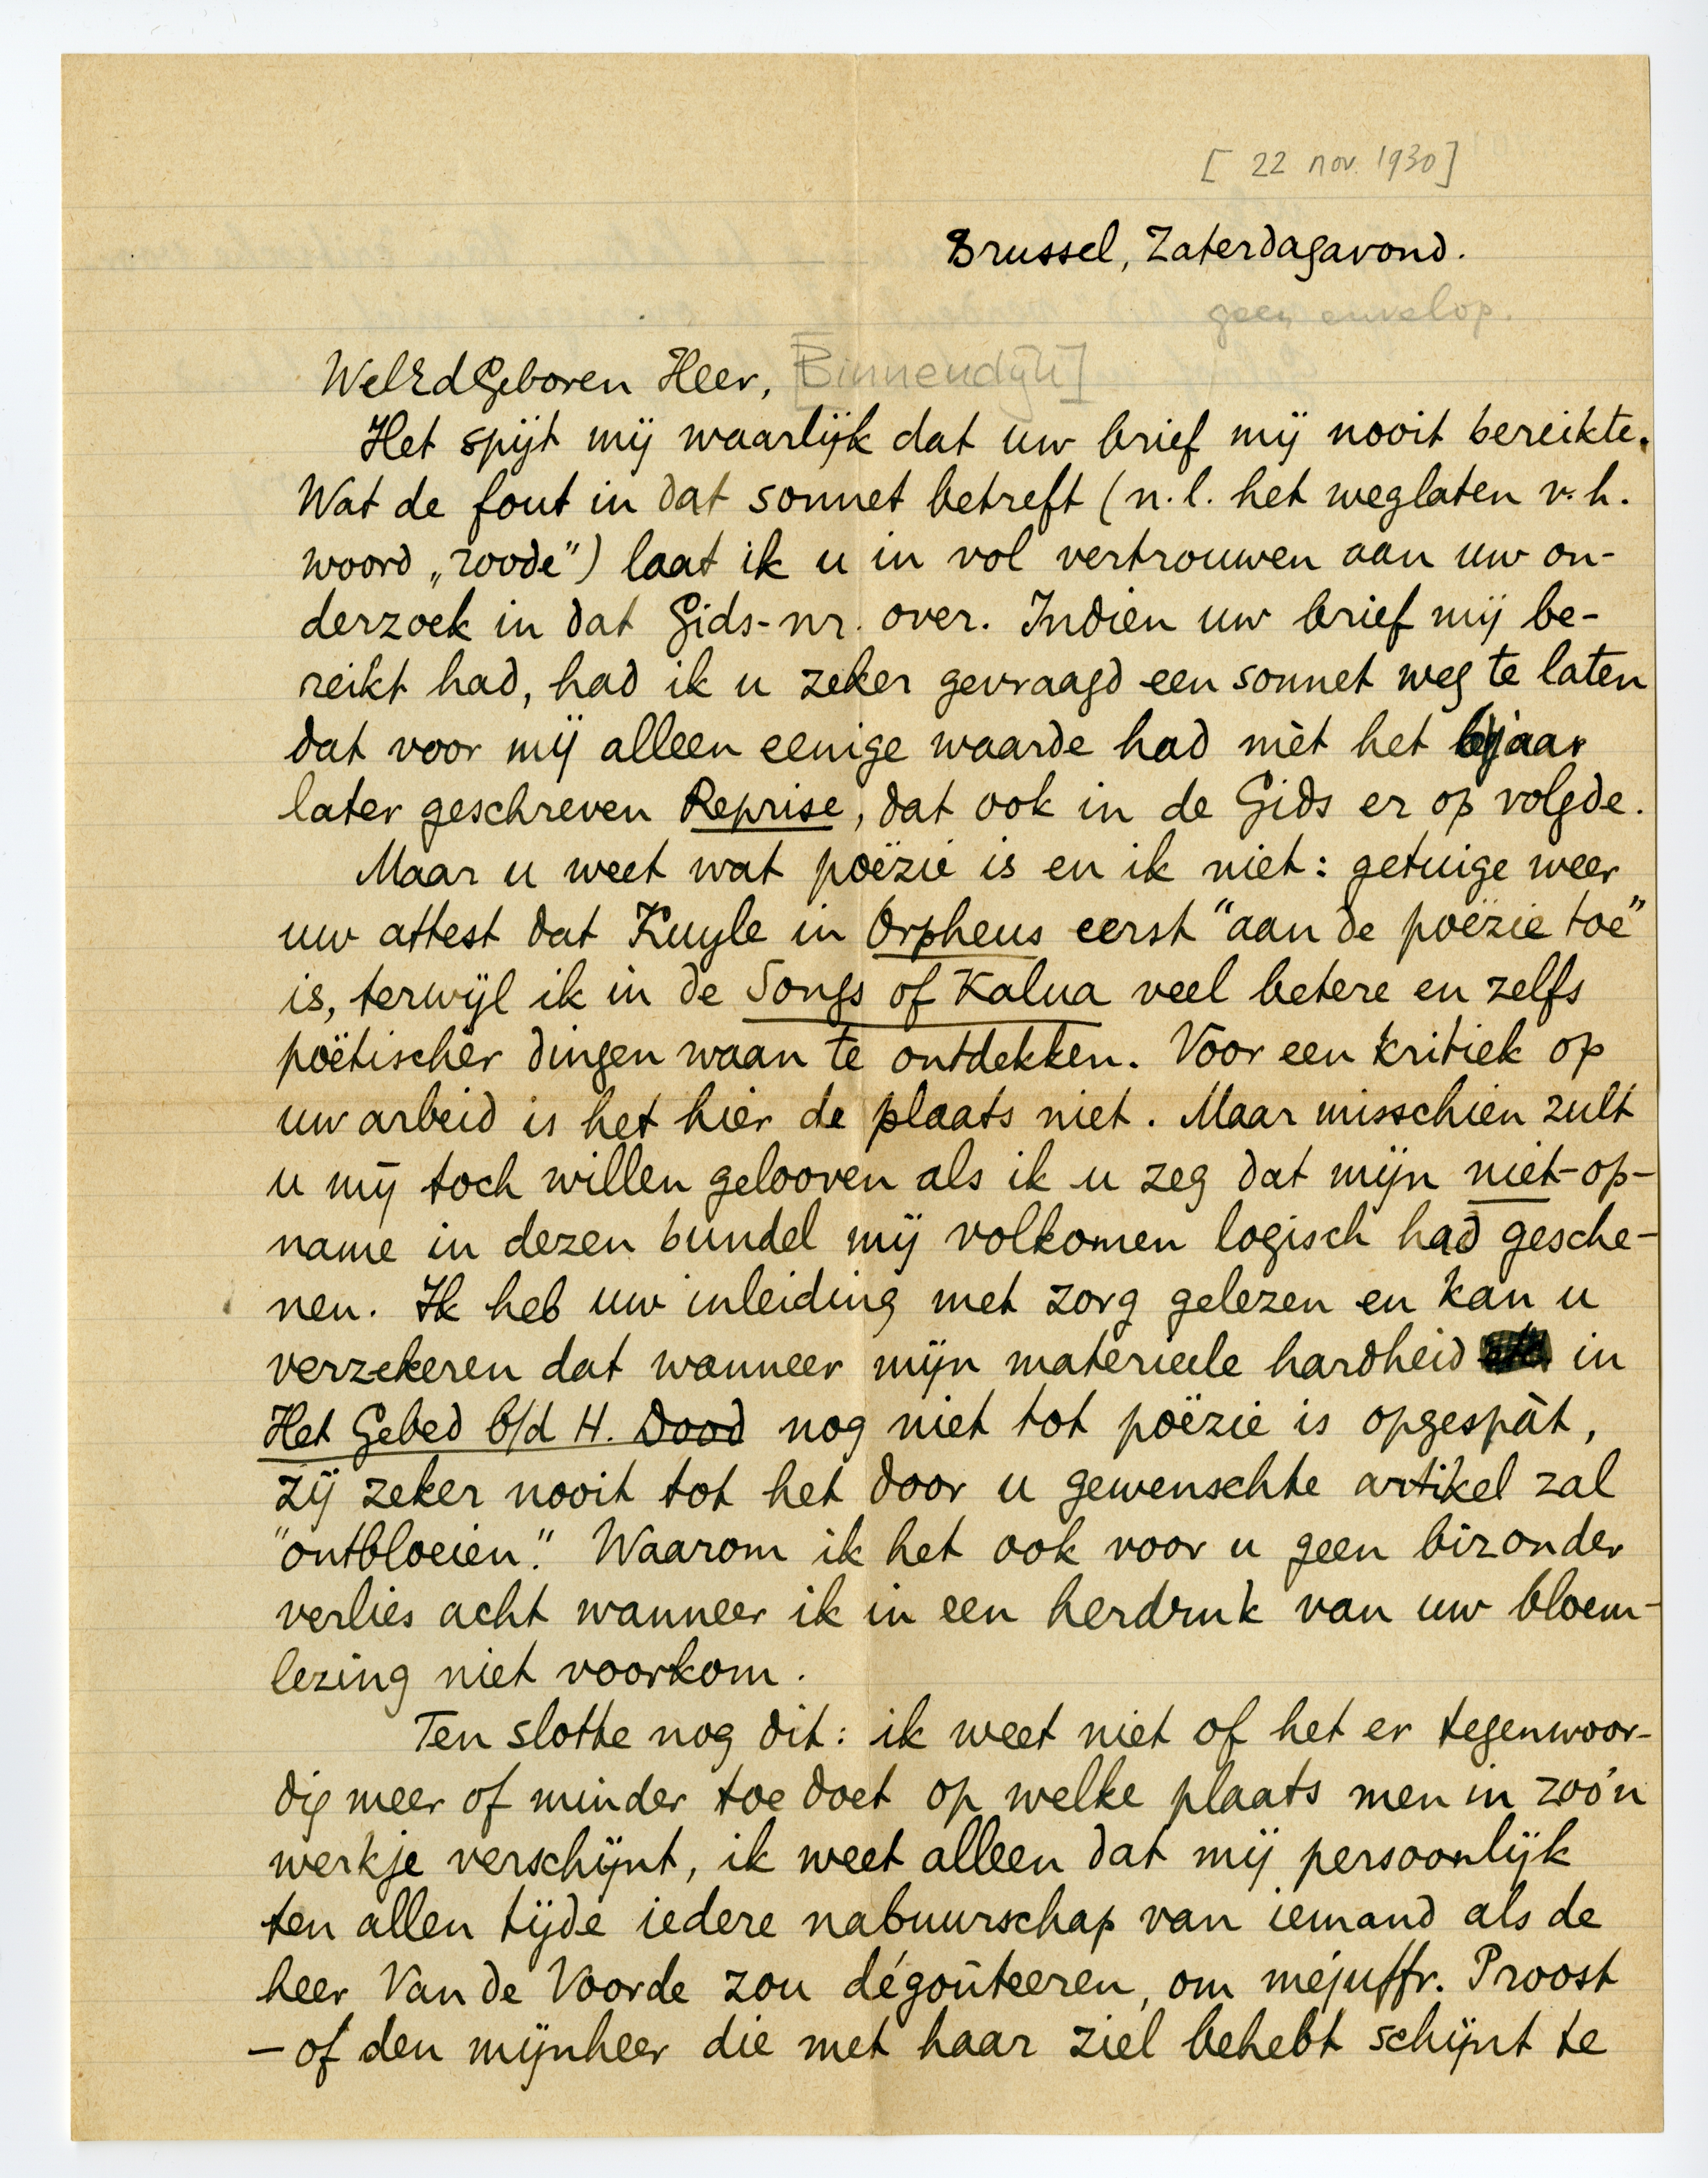 [22 nov. 1930]
Brussel, Zaterdagavond.
geen envelop.
WelEdGeboren Heer, [Binnendijk]
Het spijt mij waarlijk dat uw brief mij nooit bereikte.
Wat de fout in dat sonnet betreft (n.l. het weglaten v.h.
woord „roode”) laat ik u in vol vertrouwen aan uw on-
derzoek in dat Gids-nr. over. Indien uw brief mij be-
reikt had, had ik u zeker gevraagd een sonnet weg te laten
dat voor mij alleen eenige waarde had mèt het jaar
later geschreven Reprise, dat ook in de Gids er op volgde.
Maar u weet wat poëzie is en ik niet: getuige weer
uw attest dat Kuyle in Orpheus eerst “aan de poëzie toe”
is, terwijl ik in de Songs of Kalua veel betere en zelfs
poëtischer dingen waan te ontdekken. Voor een kritiek op
uw arbeid is het hier de plaats niet. Maar misschien zult
u mij toch willen gelooven als ik u zeg dat mijn niet-op-
name in dezen bundel mij volkomen logisch had gesche-
nen. Ik heb uw inleiding met zorg gelezen en kan u
verzekeren dat wanneer mijn materieele hardheid in
Het Gebed b/d H. Dood nog niet tot poëzie is opgespàt,
zij zeker nooit tot het door u gewenschte artikel zal
“ontbloeien.” Waarom ik het ook voor u geen bizonder
verlies acht wanneer ik in een herdruk van uw bloem-
lezing niet voorkom.
Ten slotte nog dit: ik weet niet of het er tegenwoor-
dig meer of minder toe doet op welke plaats men in zoo'n
werkje verschijnt, ik weet alleen dat mij persoonlijk
ten allen tijde iedere nabuurschap van iemand als de
heer Van de Voorde zou dégoûteeren, om mejuffr. Proost
— of den mijnheer die met haar ziel behebt schijnt te